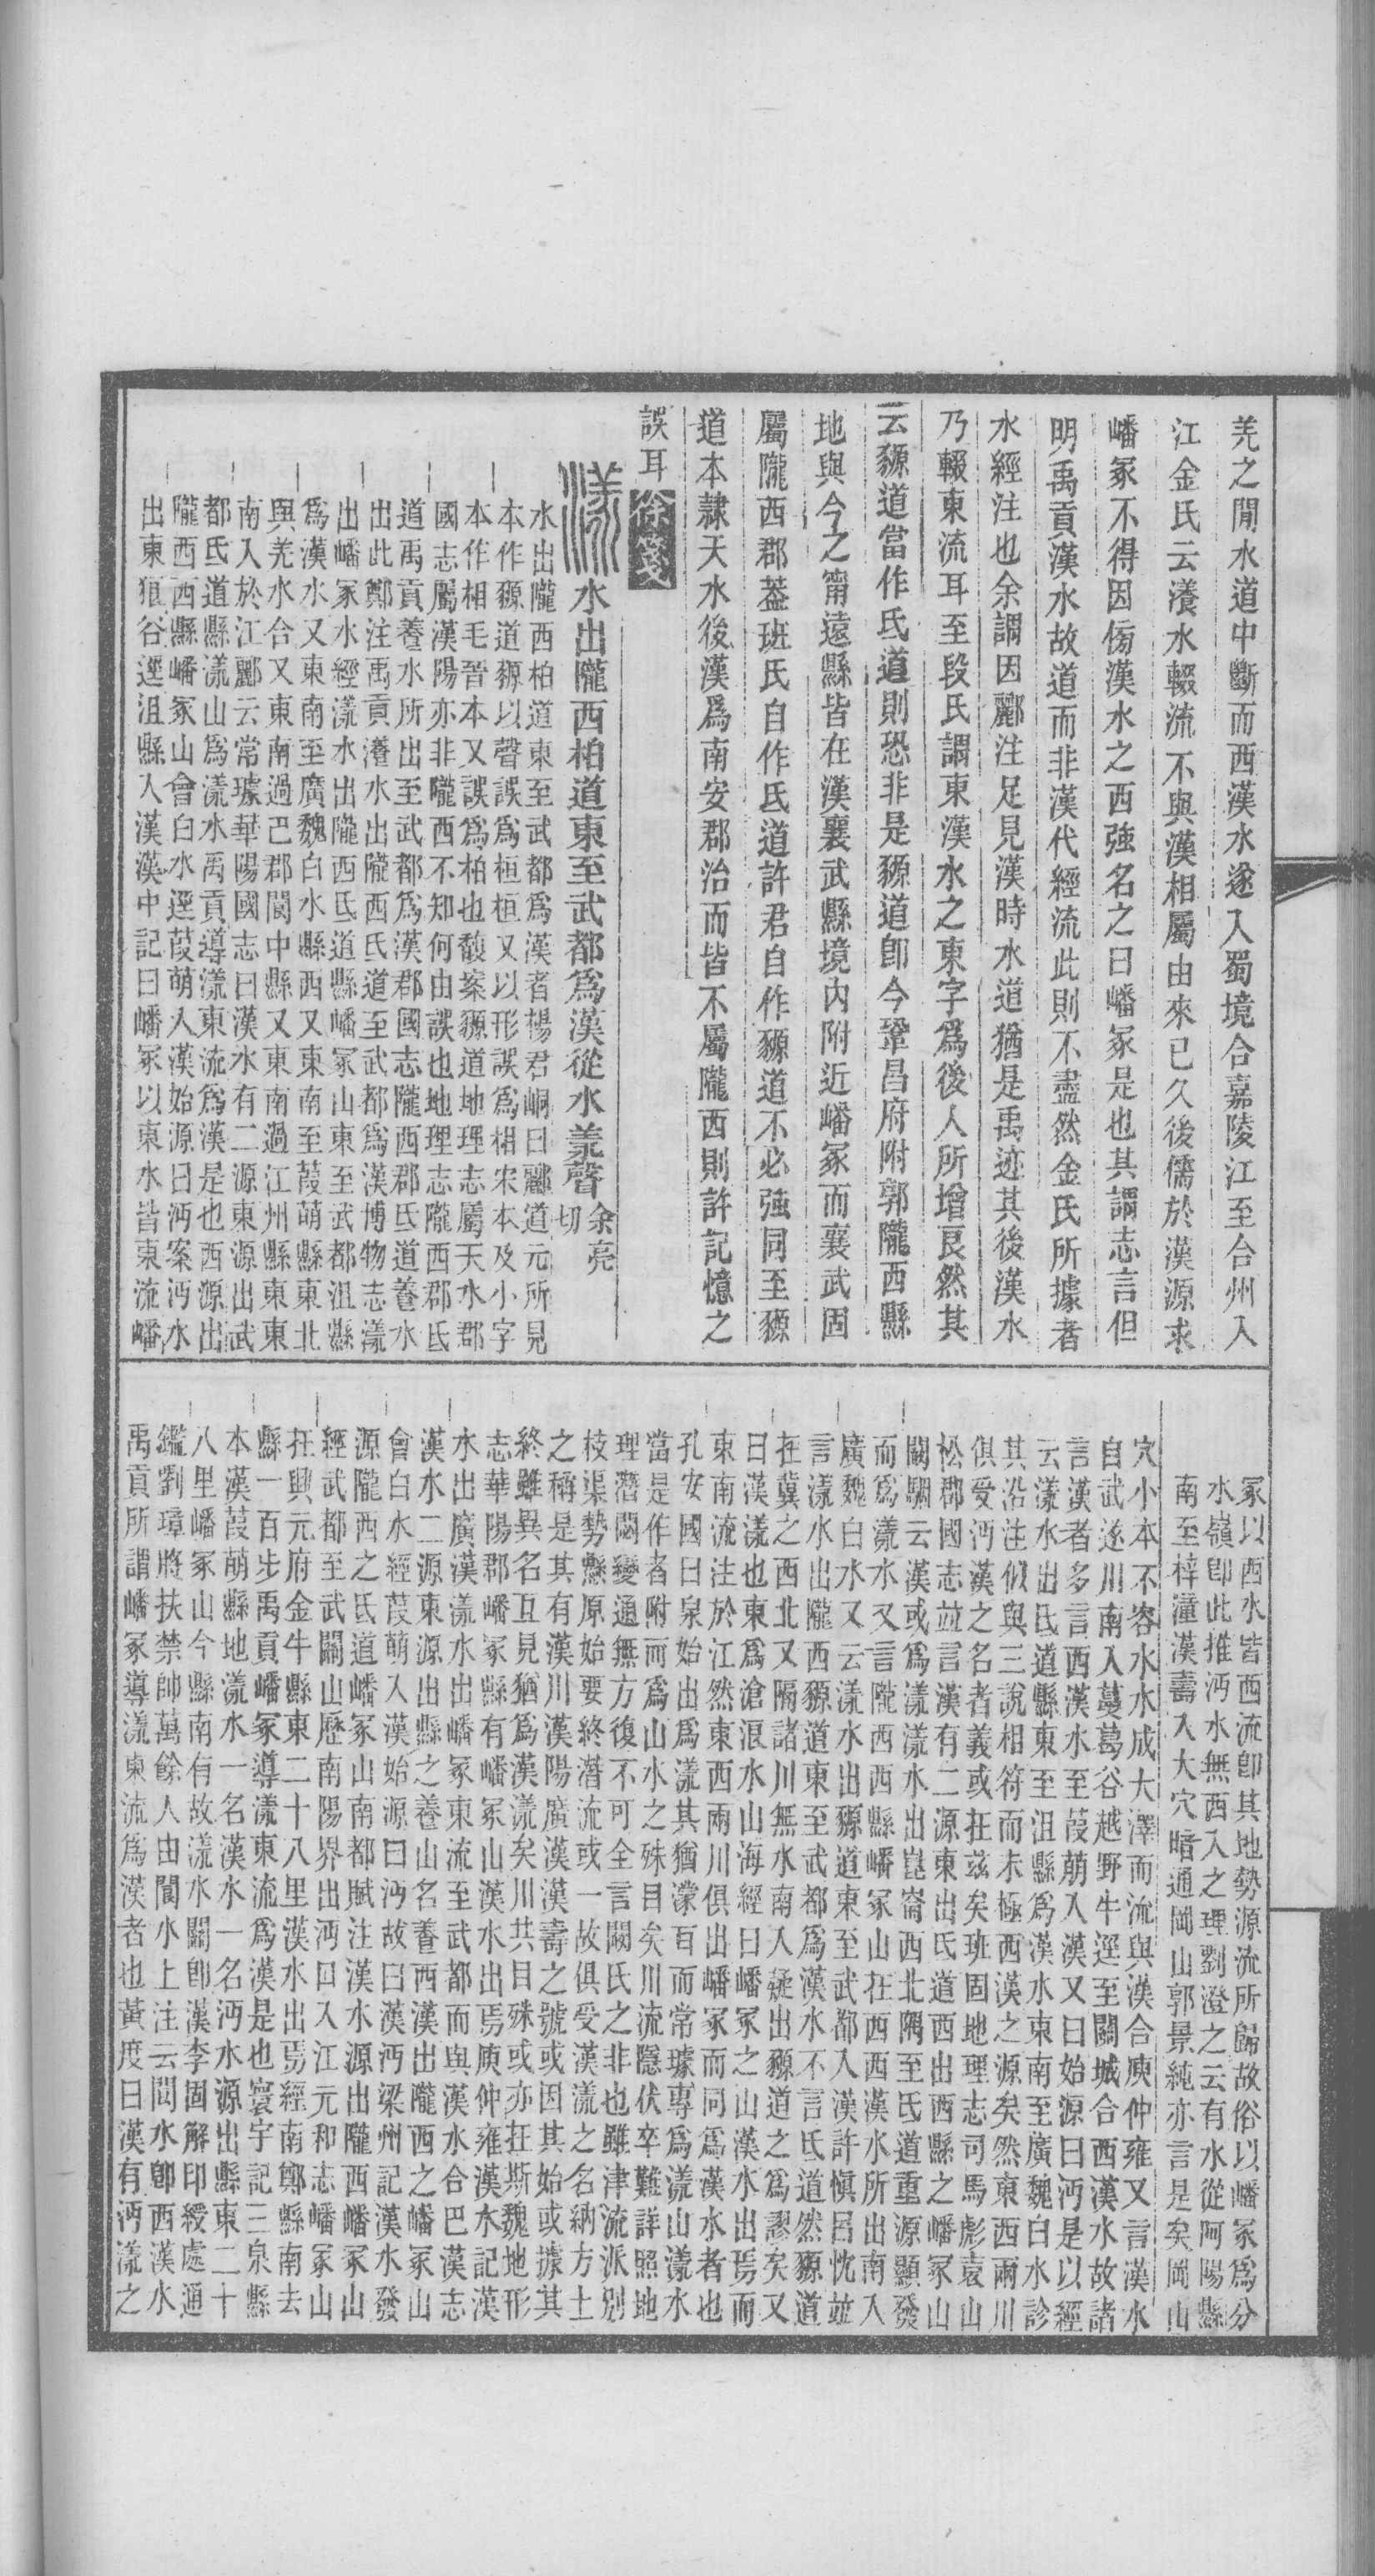 羌之閒水道中斷而西漢水遂入蜀境合嘉陵江至合州入
江金氏云瀁水輟流不與漢相屬由來已久後儒於漢源求
嶓冢不得因㑂漢水之西強名之曰嶓冢是也其謂志言但
明禹貢漢水故道而非漢代經流此則不盡然金氏所據者
水經注也余謂因酈注足見漢時水道猶是禹迹其後漢水
乃輟東流耳至段氏謂東漢水之東字爲後人所增艮然其
云豲道當作氐道則恐非是豲道卽今鞏昌府附郭隴西縣
地與今之甯遠縣皆在漢襄武縣境內附近嶓冢而襄武固
屬隴西郡葢班氏自作氐道許君自作豲道不必強同至豲
道本隷天水後漢爲南安郡治而皆不屬隴西則許記憶之
誤耳徐箋
漾水出隴西柏道東至武都爲漢從水羕聲余亮切
水出隴西柏道東至武都爲漢者楊君峒曰酈道元所見
本作豲道豲以聲誤爲桓桓又以形誤爲相宋本及小字
本作相毛晉本又誤爲柏也馥案豲道地理志屬天水郡
國志屬漢陽亦非隴西不知何由誤也地理志隴西郡氐
道禹貢養水所出至武都爲漢郡國志隴西郡氐道養水
出此鄭注禹貢瀁水出隴西氐道至武都爲漢博物志漾
出嶓冢水經漾水出隴西氐道縣嶓冢山東至武都沮縣
爲漢水又東南至廣魏白水縣西又東南至葭萌縣東北
與羌水合又東南過巴郡閬中縣又東南過江州縣東東
南入於江酈云常璩華陽國志曰漢水有二源東源出武
都氐道縣漾山爲漾水禹貢導漾東流爲漢是也西源出
隴西西縣嶓冢山會白水逕葭萌入漢始源曰沔案沔水
出東狼谷逕沮縣入漢漢中記曰嶓冢以東水皆東流嶓
冢以西水皆西流卽其地勢源流所歸故俗以嶓冢爲分
水嶺卽此推沔水無西入之理劉澄之云有水從阿陽縣
南至梓潼漢壽入大穴暗通岡山郭景純亦言是矣岡山
穴小本不容水水成大澤而流與漢合庾仲雍又言漢水
自武遂川南入蔓葛谷越野牛逕至關城合西漢水故諸
言漢者多言西漢水至葭萌入漢又曰始源曰沔是以經
云漾水出氐道縣東至沮縣爲漢水東南至廣魏白水診
其沿注似與三說相符而未極西漢之源矣然東西兩川
俱受沔漢之名者義或在茲矣班固地理志司馬彪袁山
松郡國志竝言漢有二源東出氐道西出西縣之嶓冢山
闞駰云漢或爲漾漾水出崑崙西北隅至氐道重源顯發
而爲漾水又言隴西西縣嶓冢山在西西漢水所出南入
廣魏白水又云漾水出豲道東至武都入漢許愼呂忱竝
言漾水出隴西豲道東至武都爲漢水不言氐道然豲道
在冀之西北又隔諸川無水南入疑出豲道之爲謬矣又
曰漢漾也東爲滄浪水山海經曰嶓冢之山漢水出焉而
東南流注於江然東西兩川俱出嶓冢而同爲漢水者也
孔安國曰泉始出爲漾其猶濛耳而常璩專爲漾山漾水
當是作者附而爲山水之殊目矣川流隱伏卒難詳照地
理潛閟變通無方復不可全言闞氏之非也雖津流派別
枝渠勢縣原始要終潛流或一故俱受漢漾之名納方土
之稱是其有漢川漢陽廣漢漢壽之號或因其始或據其
終雖異名互見猶爲漢漾矣川共目殊或亦在斯魏地形
志華陽郡嶓冢縣有嶓冢山漢水出焉庾仲雍漢水記漢
水出廣漢漾水出嶓冢東流至武都而與漢水合巴漢志
漢水二源東源出縣之養山名養西漢出隴西之嶓冢山
會白水經葭萌入漢始源曰沔故曰漢沔梁州記漢水發
源隴西之氐道嶓冢山南都賦注漢水源出隴西嶓冢山
經武都至武關山歷南陽界出沔口入江元和志嶓冢山
在興元府金牛縣東二十八里漢水出焉經南鄭縣南去
縣一百步禹貢嶓冢導漾東流爲漢是也寰宇記三泉縣
本漢葭萌縣地漾水一名漢水一名沔水源出縣東二十
八里嶓冢山今縣南有故漾水關卽漢李固解印綬處通
鑑劉璋將扶禁帥萬餘人由閬水上注云閬水卽西漢水
禹貢所謂嶓冢導漾東流爲漢者也黃度曰漢有沔漾之